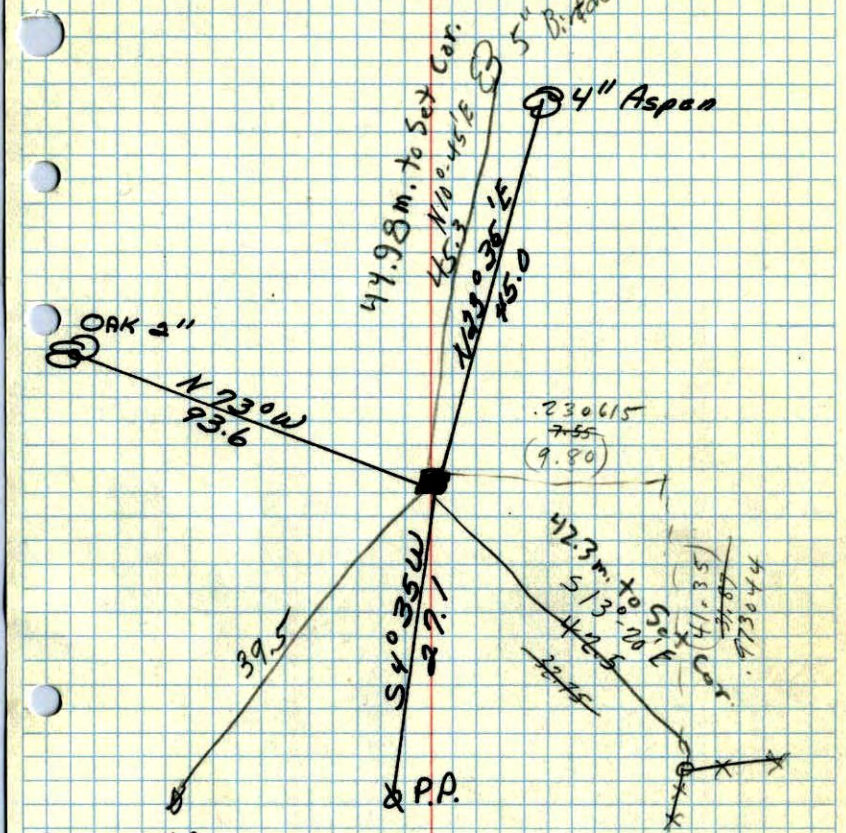 5" Birch
4" Aspen
44.98 m. to Set Cor.
N10°-45'E
45.3
N23°35'E
45.0
OAK 2"
N73°W
93.6
.230615
7.55
(9.80)
42.3 m. to Set Cor.
S13°-20'E
42.5
32.75
(41.35)
31.87
.973044
S4°35W
27.1
39.5
P.P.